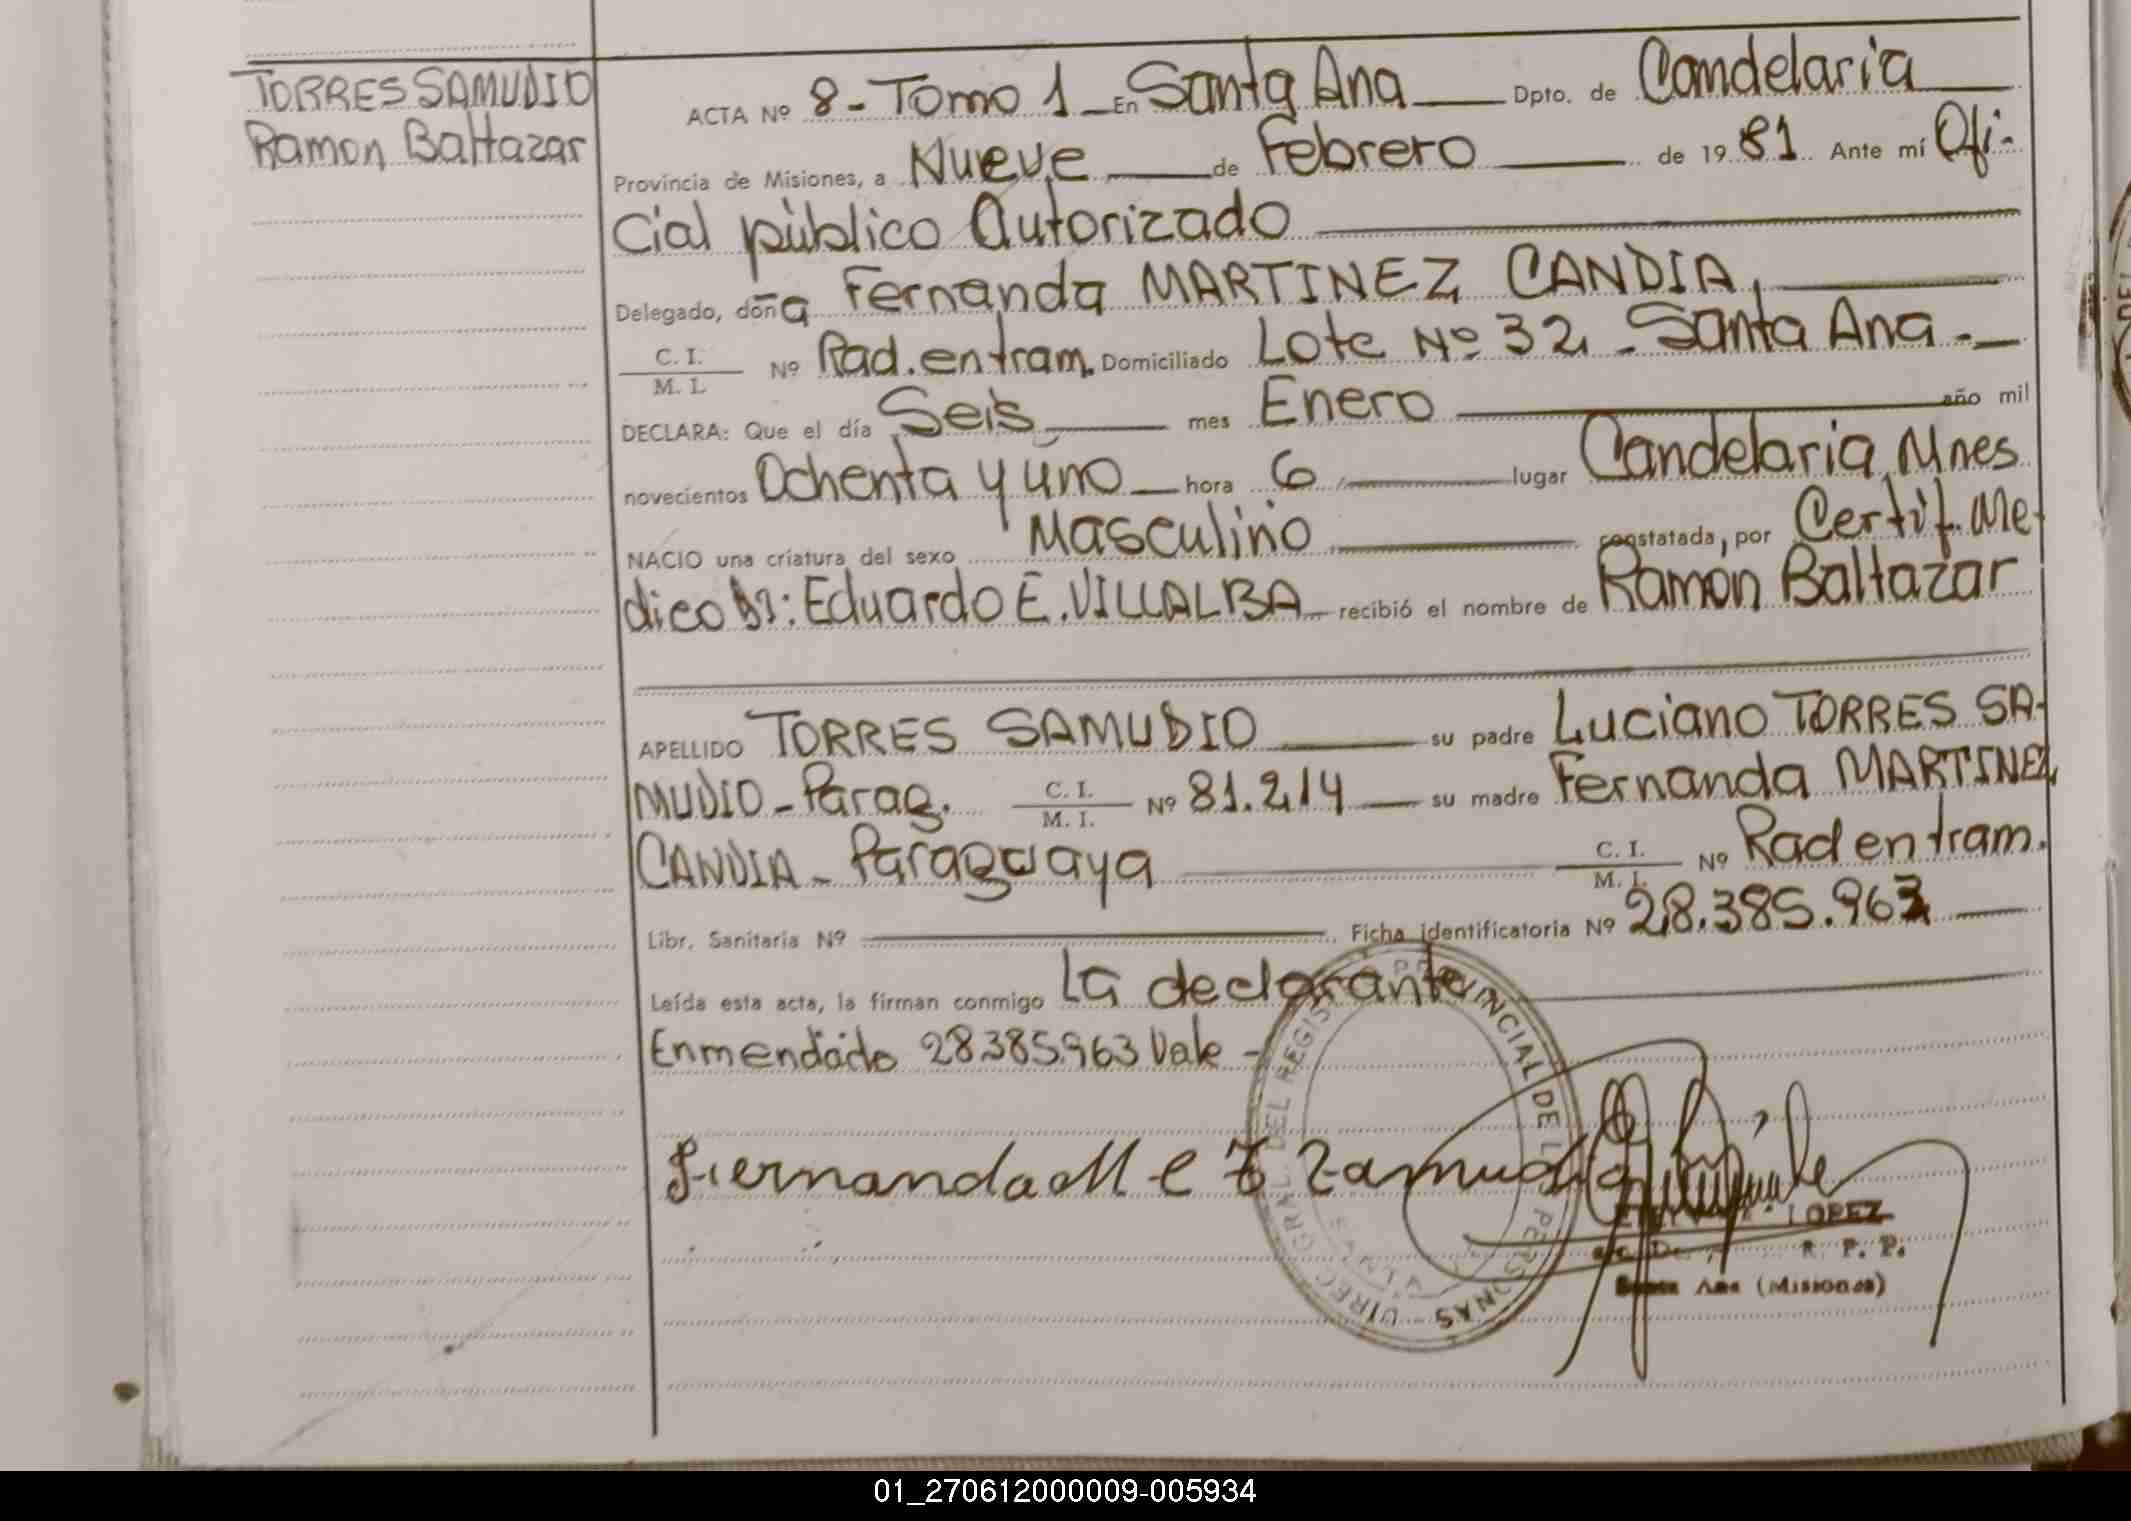 TORRES SAMUDIO
Ramon Baltazar
ACTA Nº 8 - Tomo 1 En Santa Ana Dpto. de Candelaria
Provincia de Misiones, a Nueve de Febrero de 1981 Ante mí Ofi-
cial público Autorizado
Delegado, doña Fernanda MARTINEZ CANDIA,
C. I. / M. I. Nº Rad. en tram. Domiciliado Lote Nº 32 - Santa Ana -
DECLARA: Que el día Seis mes Enero año mil
novecientos Ochenta y uno hora 6 lugar Candelaria Mnes
NACIO una criatura del sexo Masculino constatada, por Certif. Me-
dico Dr: Eduardo E. VILLALBA recibió el nombre de Ramon Baltazar
APELLIDO TORRES SAMUDIO su padre Luciano TORRES SA-
MUDIO - Parag. C. I. / M. I. Nº 81.214 su madre Fernanda MARTINEZ
CANDIA - Paraguaya C. I. / M. I. Nº Rad en tram.
Libr. Sanitaria Nº Ficha identificatoria Nº 28.385.963
Leída esta acta, la firman conmigo La declarante
Enmendado 28385.963 Vale -
Fernanda M C de Zamudio
DIREC. GRAL. DEL REGISTRO PROVINCIAL DE LAS PERSONAS
LOPEZ
R. P. P.
Santa Ana (Misiones)
01_270612000009-005934